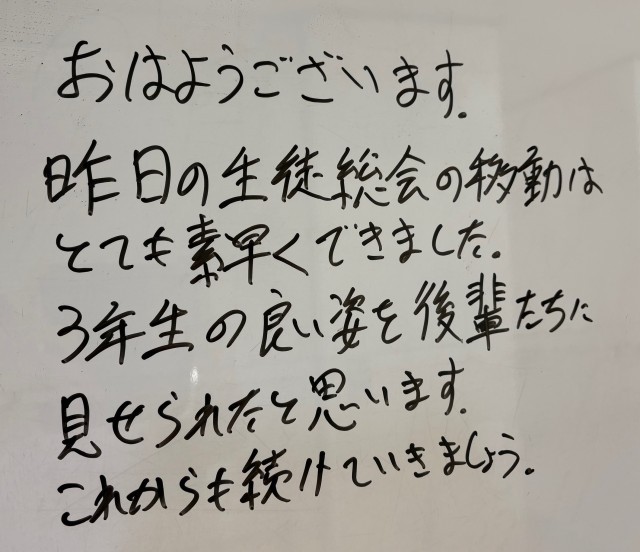 おはようございます.
昨日の生徒総会の移動は
とても素早くできました.
3年生の良い姿を後輩たちに
見せられたと思います.
これからも続けていきましょう.